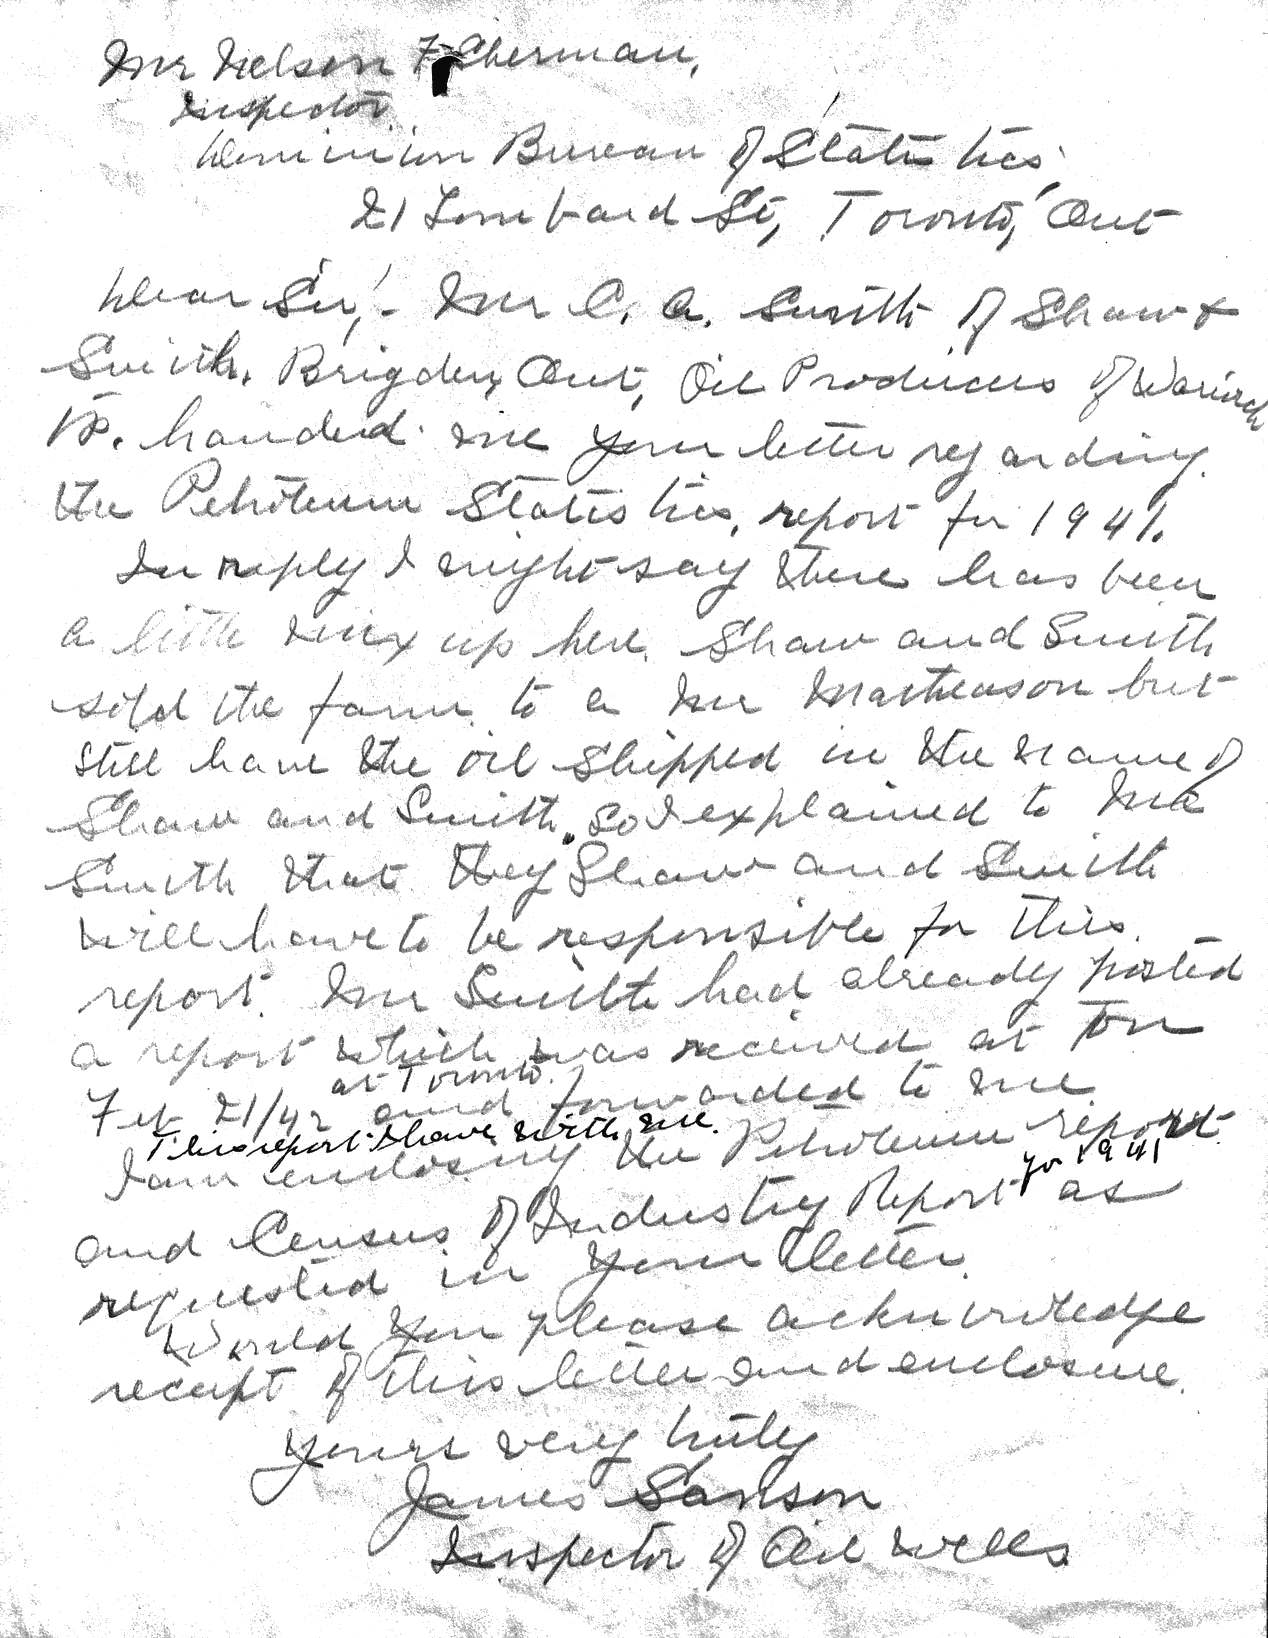 Mr Nelson F. Sherman,
Inspector
Dominion Bureau of Statistics,
21 Lombard St, Toronto, Ont
Dear Sir,- Mr C. A. Smith of Shaw &
Smith. Brigden, Ont, Oil Producers of Warwick
Tp. handed me your letter regarding
the Petroleum Statistics, report for 1941.
In reply I might say there has been
a little mix up here. Shaw and Smith
sold the farm to a Mr Matheason but
still have the oil shipped in the name of
Shaw and Smith, so I explained to Mr
Smith that they Shaw and Smith
will have to be responsible for this
report. Mr Smith had already posted
a report which was received at Tor
at Toronto.
Feb 21/42 and forwarded to me
This report I have with me.
I am enclosing the Petroleum report
for 1941
and Census of Industry Report as
requested in your letter.
Would you please acknowledge
receipt of this letter and enclosure.
Yours very truly
James Sanson
Inspector of Oil Wells